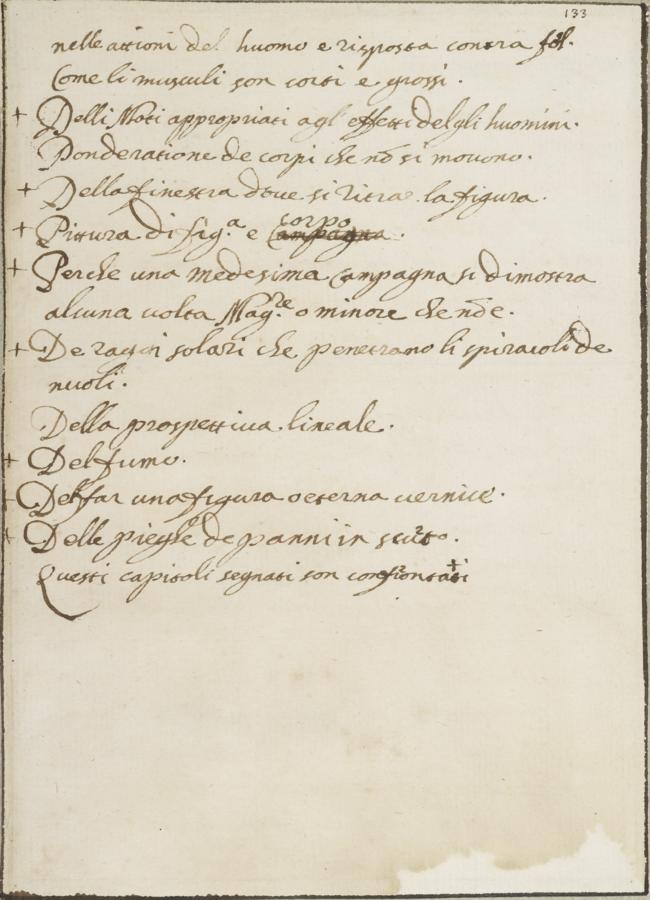 133
nelle attioni del huomo e risposta contra
Come li musculi son corti e grossi.
+ Delli Moti appropriati agl' effetti delgli huomini.
Ponderatione de corpi che nõ si movono.
+ Della finestra dove si ritrae la figura.
+ Pittura di fig.ª e corpo Campagna.
+ Perche una medesima Campagna si dimostra
alcuna volta Mag.re o minore che nõ e.
+ De raggi solari che penetrano li spiracoli de
nuoli.
Della prospettiva lineale.
+ Del fumo.
+ Del far una figura o eterna vernice.
+ Delle pieghe de panni in
Questi capitoli segnati + son confrontati